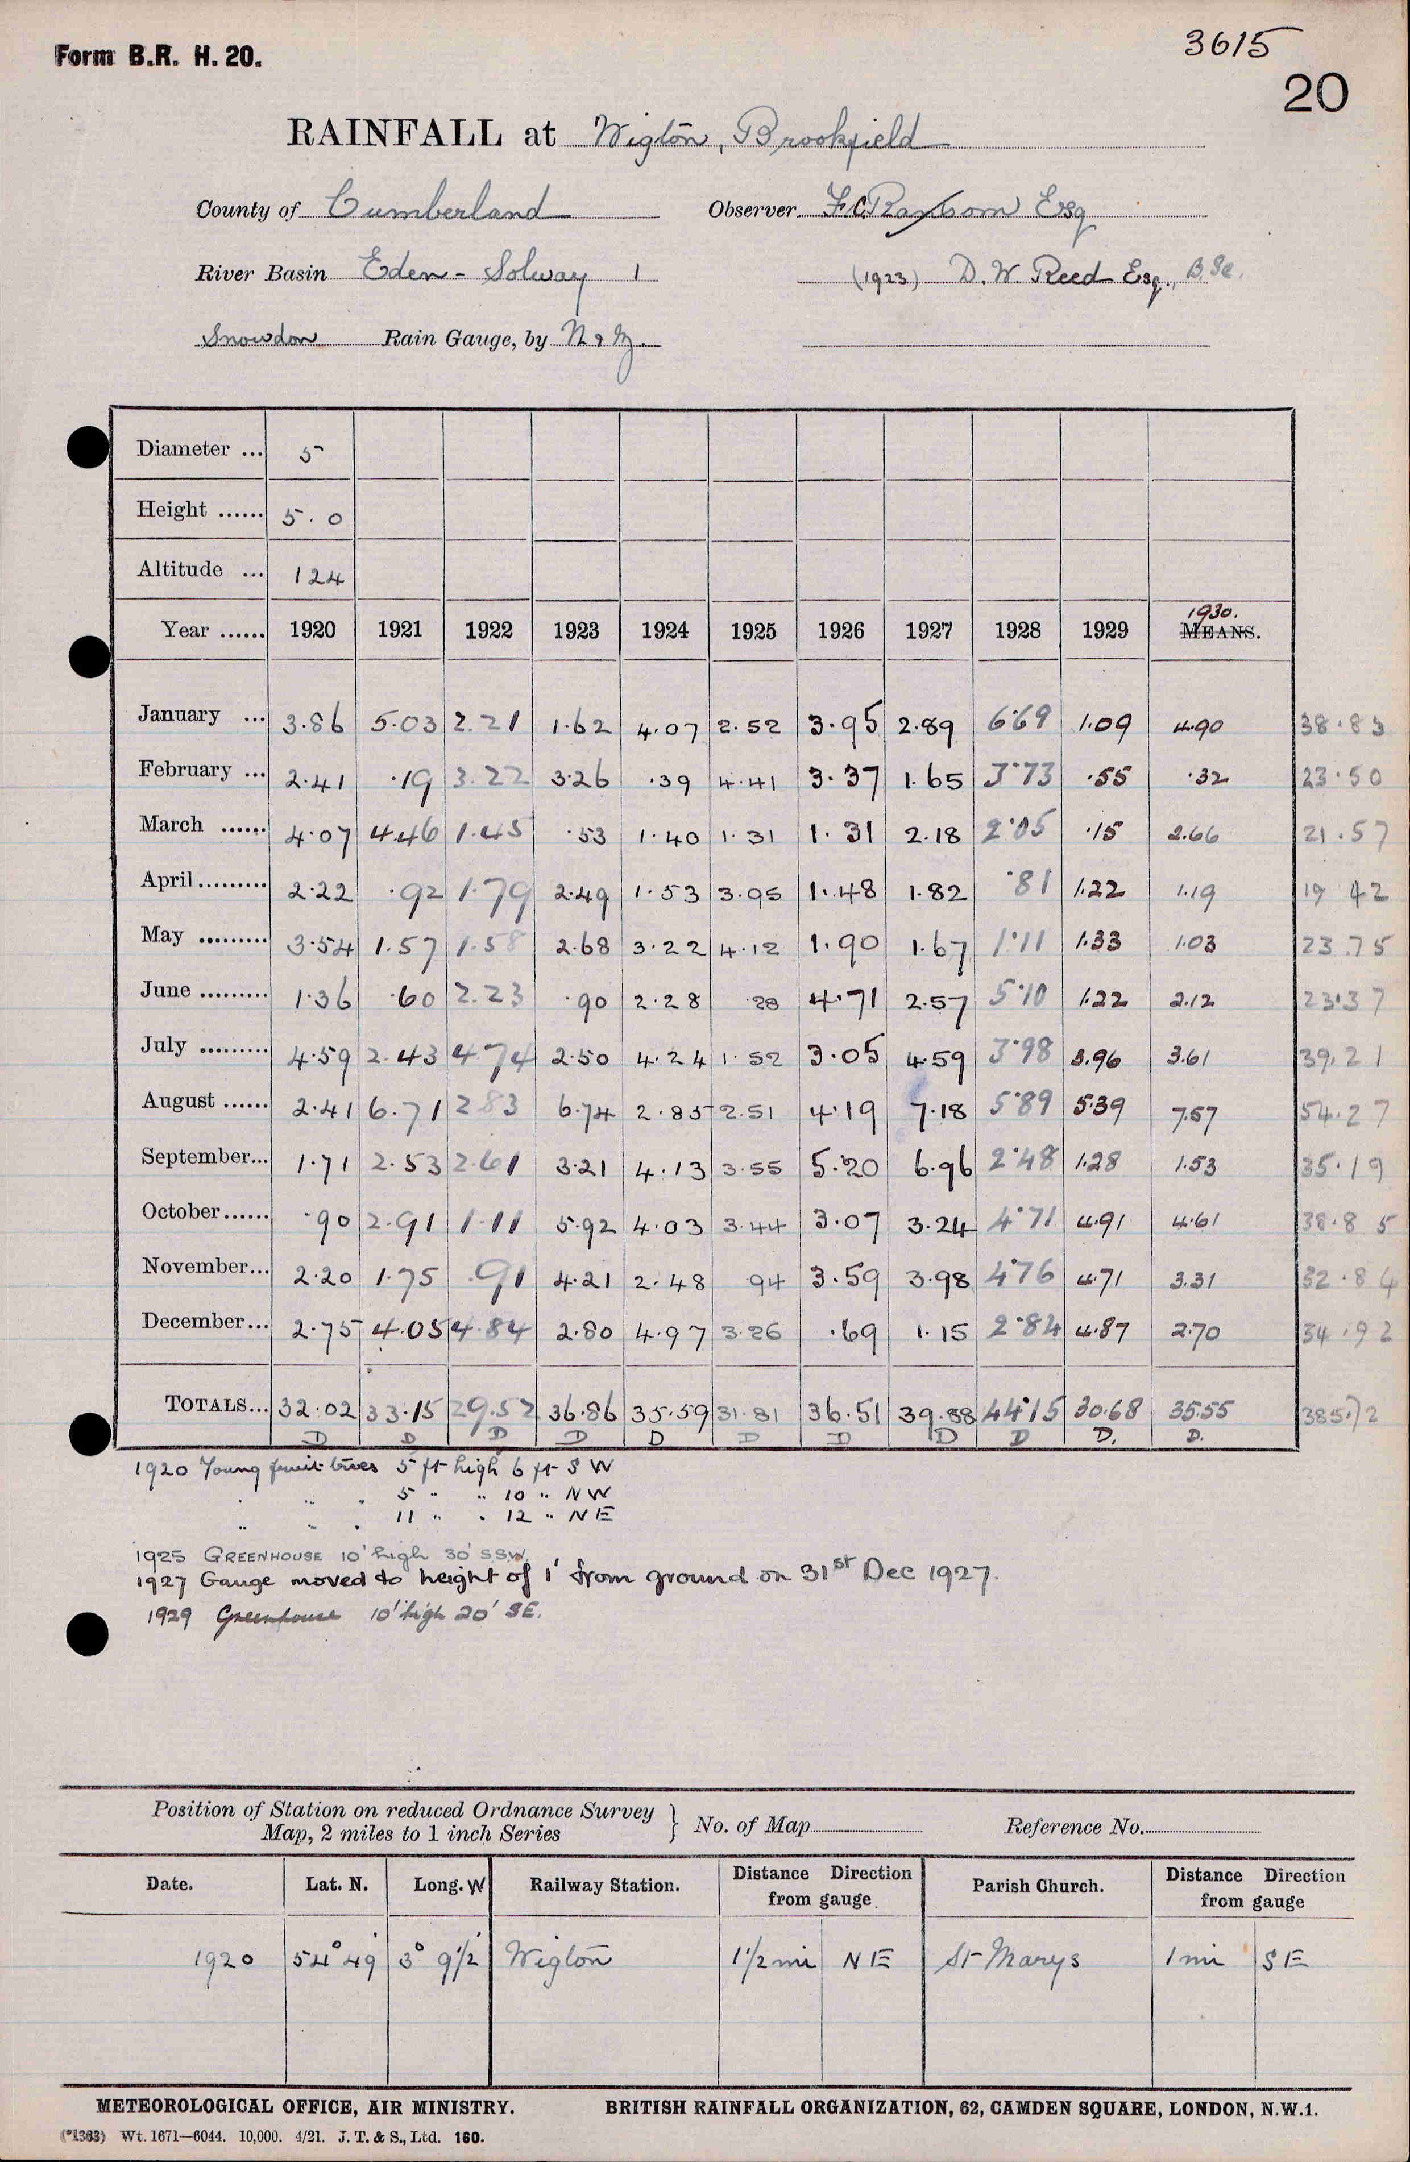 Form B.R. H. 20.
3615
20
RAINFALL at Wigton, Brookfield
County of Cumberland Observer F.C. Ransom Esq
River Basin Eden - Solway 1 (1923) D. W. Reed Esq., B.Sc.
Snowdon Rain Gauge, by N & Z.
Diameter ... 5
Height ...... 5.0
Altitude ... 124
Year ...... 1920 1921 1922 1923 1924 1925 1926 1927 1928 1929 1930. MEANS.
January ... 3.86 5.03 2.21 1.62 4.07 2.52 3.95 2.89 6.69 1.09 4.90 38.83
February ... 2.41 .19 3.22 3.26 .39 4.41 3.37 1.65 3.73 .55 .32 23.50
March ...... 4.07 4.46 1.45 .53 1.40 1.31 1.31 2.18 2.05 .15 2.66 21.57
April ......... 2.22 .92 1.79 2.49 1.53 3.95 1.48 1.82 .81 1.22 1.19 19 42
May ......... 3.54 1.57 1.58 2.68 3.22 4.12 1.90 1.67 1.11 1.33 1.03 23.75
June ......... 1.36 .60 2.23 .90 2.28 .28 4.71 2.57 5.10 1.22 2.12 23.37
July ......... 4.59 2.43 4.74 2.50 4.24 1.52 3.05 4.59 3.98 3.96 3.61 39.21
August ...... 2.41 6.71 2.83 6.74 2.85 2.51 4.19 7.18 5.89 5.39 7.57 54.27
September... 1.71 2.53 2.61 3.21 4.13 3.55 5.20 6.96 2.48 1.28 1.53 35.19
October ...... .90 2.91 1.11 5.92 4.03 3.44 3.07 3.24 4.71 4.91 4.61 38.85
November... 2.20 1.75 .91 4.21 2.48 .94 3.59 3.98 4.76 4.71 3.31 32.84
December... 2.75 4.05 4.84 2.80 4.97 3.26 .69 1.15 2.84 4.87 2.70 34.92
TOTALS... 32.02 33.15 29.52 36.86 35.59 31.81 36.51 39.88 44.15 30.68 35.55 385.72
D D D D D D D D D D. D.
1920 Young fruit trees 5 ft high 6 ft S W
" " " 5 " " 10 " N W
" " " 11 " " 12 " N E
1925 GREENHOUSE 10' high 30' S.S.W.
1927 Gauge moved to height of 1' from ground on 31st Dec 1927.
1929 Greenhouse 10' high 20' SE.
Position of Station on reduced Ordnance Survey
Map, 2 miles to 1 inch Series } No. of Map Reference No.
Date. Lat. N. Long. W Railway Station. Distance Direction from gauge Parish Church. Distance Direction from gauge
1920 54° 49' 3° 9½' Wigton 1½ mi N E St Marys 1 mi S E
METEOROLOGICAL OFFICE, AIR MINISTRY. BRITISH RAINFALL ORGANIZATION, 62, CAMDEN SQUARE, LONDON, N.W.1.
(*1363) Wt. 1671—6044. 10,000. 4/21. J. T. & S., Ltd. 160.